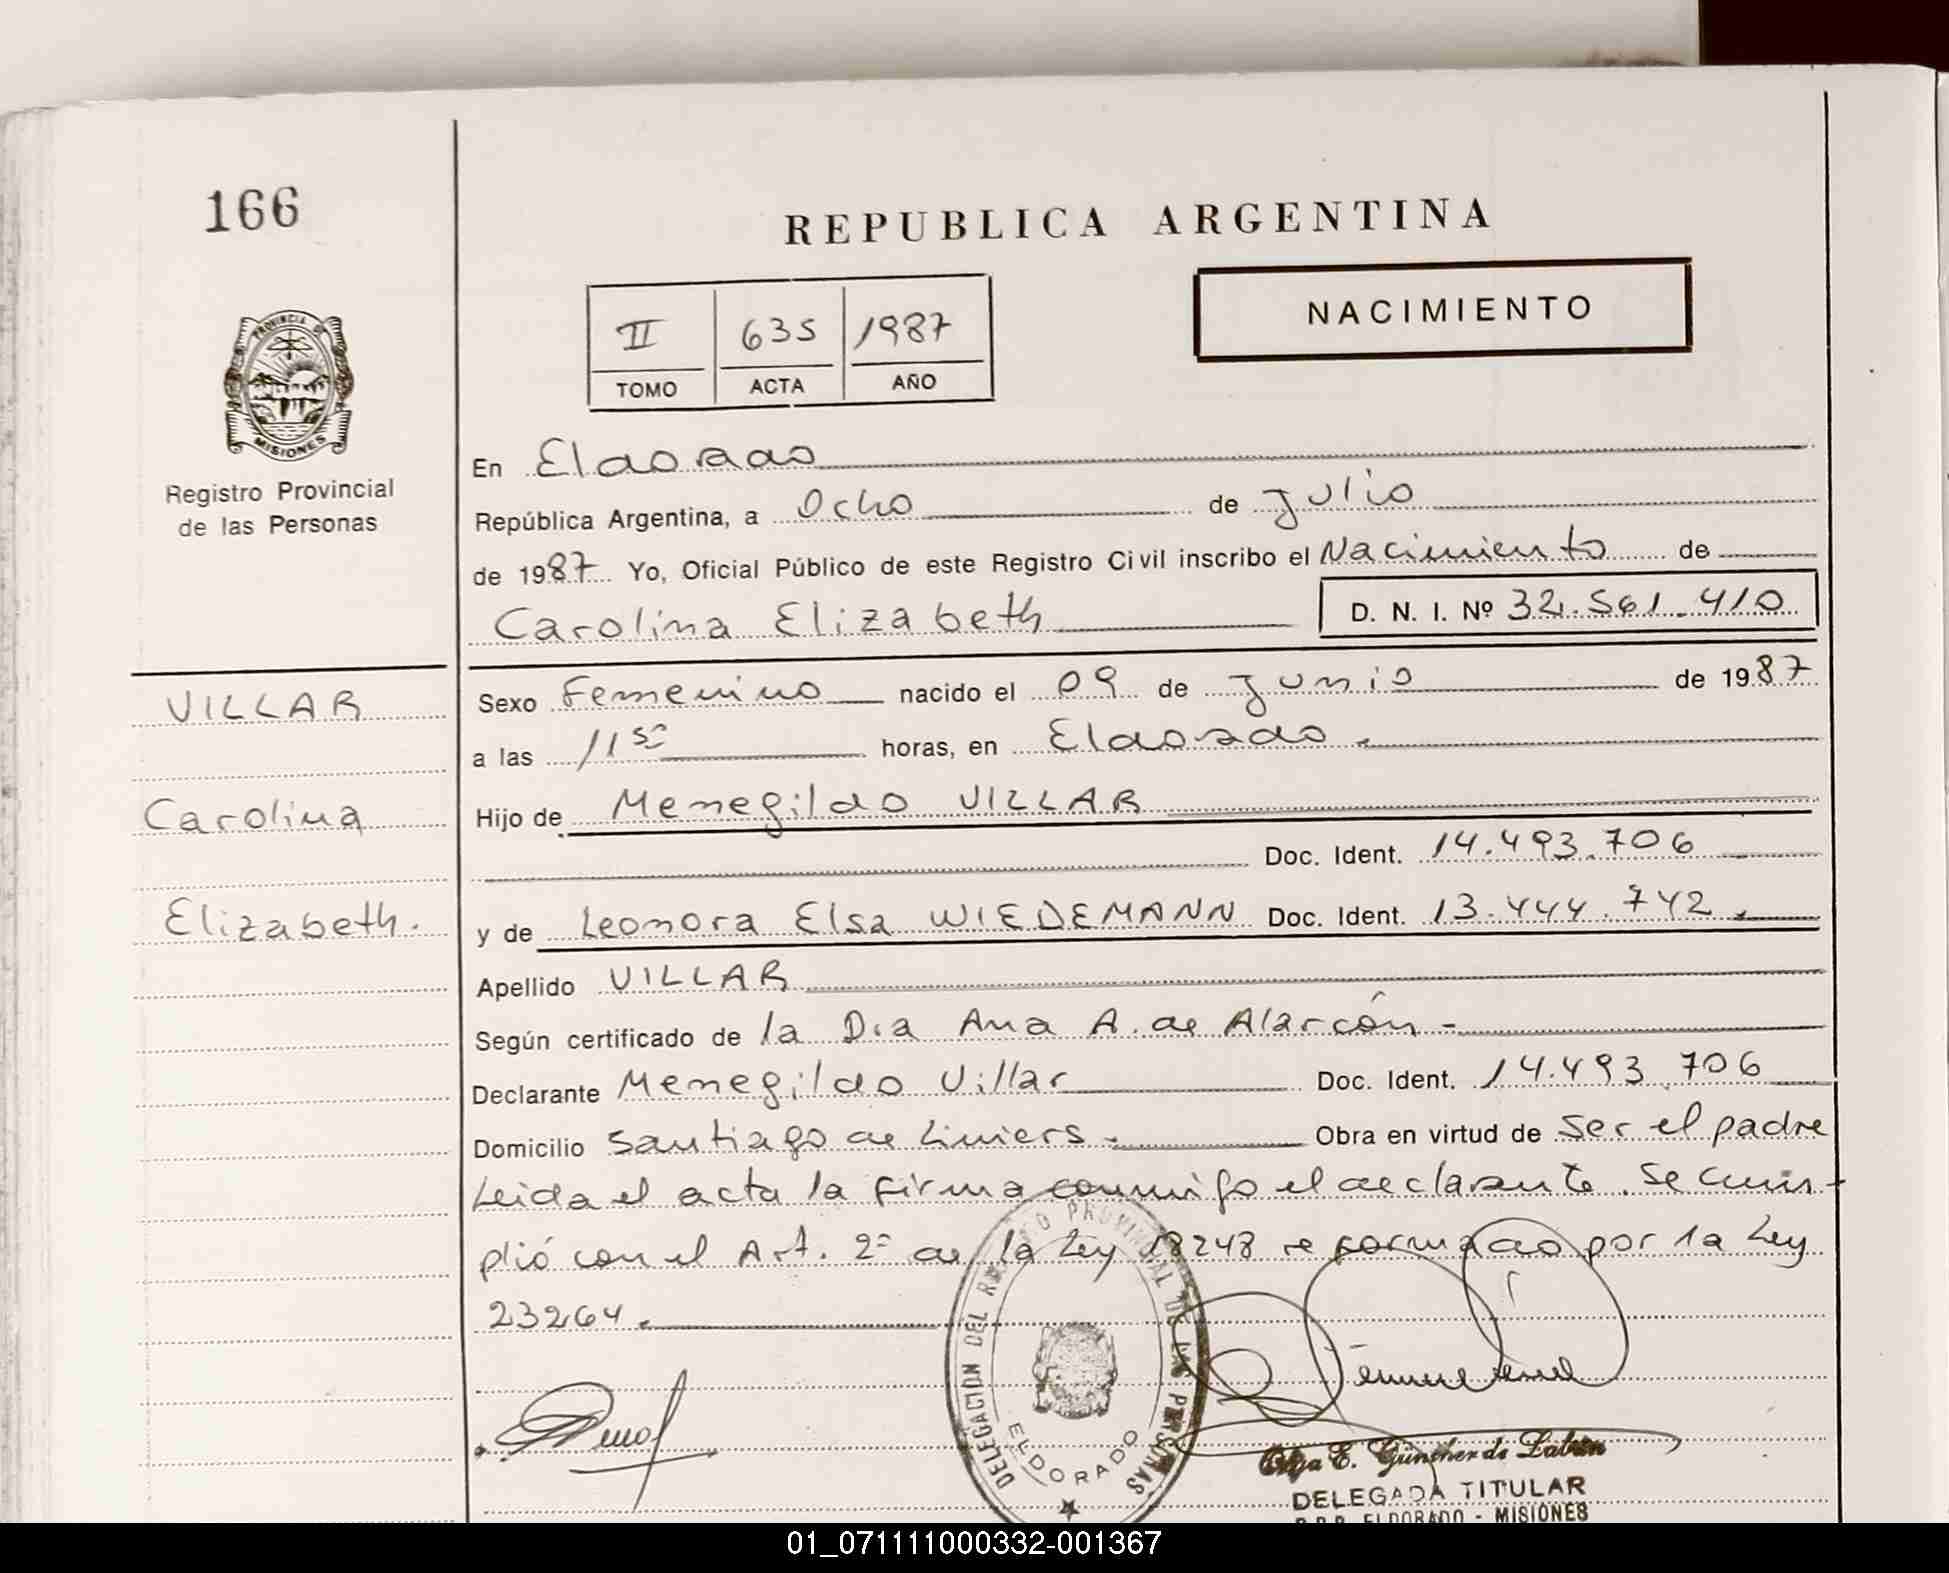 166
REPUBLICA ARGENTINA
II 635 1987
TOMO ACTA AÑO
NACIMIENTO
PROVINCIA DE
MISIONES
Registro Provincial
de las Personas
En Eldorado
República Argentina, a Ocho de Julio
de 1987 Yo, Oficial Público de este Registro Civil inscribo el Nacimiento de
Carolina Elizabeth D. N. I. Nº 32.561.410
VILLAR
Carolina
Elizabeth.
Sexo Femenino nacido el 09 de Junio de 1987
a las 11 50 horas, en Eldorado.
Hijo de Menegildo VILLAR
Doc. Ident. 14.493.706
y de Leonora Elsa WIEDEMANN Doc. Ident. 13.444.742.
Apellido VILLAR
Según certificado de la Dra Ana A. de Alarcón-
Declarante Menegildo Villar Doc. Ident. 14.493.706
Domicilio Santiago de Liniers. Obra en virtud de ser el padre
Leida el acta la firma conmigo el declarante. Se cum-
plió con el Art. 2º de la Ley 18248 reformado por la Ley
23264.
DELEGACION DEL REGISTRO PROVINCIAL DE LAS PERSONAS
ELDORADO
Olga E. Günther de Labin
DELEGADA TITULAR
R.P.P. ELDORADO - MISIONES
01_071111000332-001367